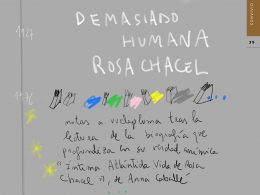 CONVIVIO
39
DEMASIADO
HUMANA
ROSA CHACEL
notas a vuelapluma tras la
lectura de la biografía que
profundiza en su verdad anímica
"Íntima Atlántida Vida de Rosa
Chacel", de Anna Caballé